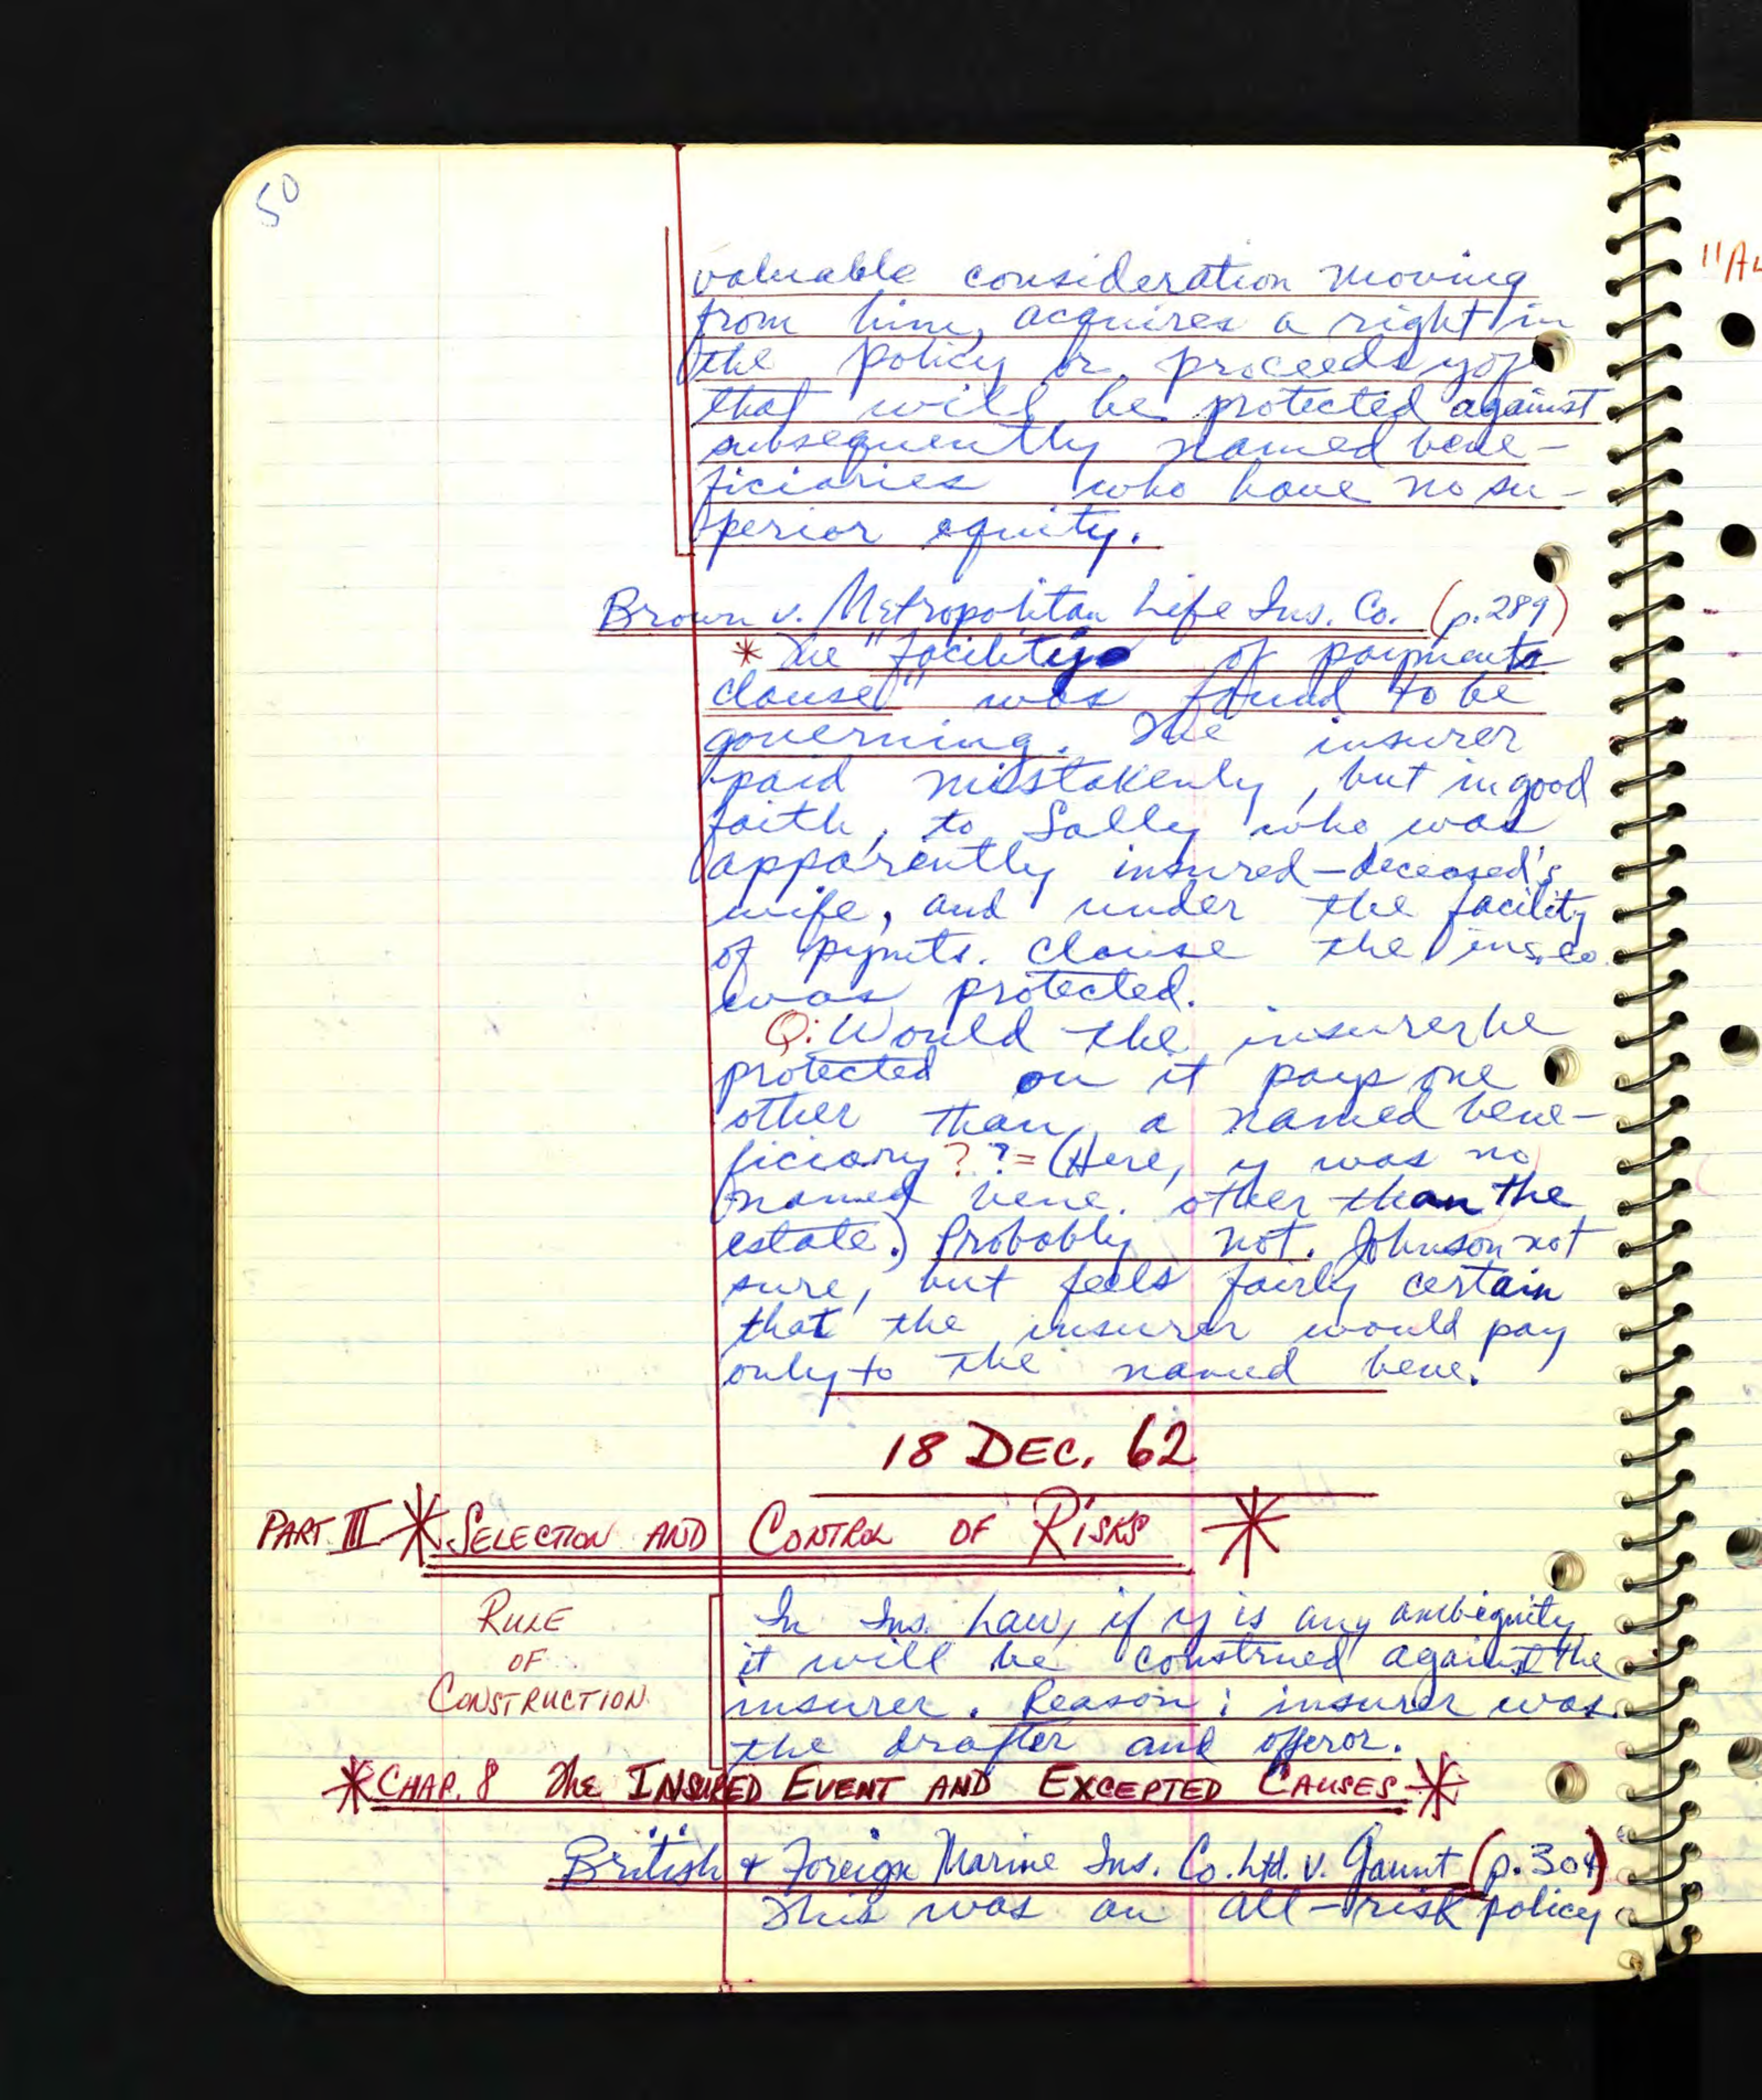 50
valuable consideration moving
from him, acquires a right in
the policy or proceeds yof
that will be protected against
subsequently named bene-
ficiaries who have no su-
perior equity.
Brown v. Metropolitan Life Ins. Co. (p. 289)
* The "facility of payments
clause" was found to be
governing. The insurer
paid mistakenly, but in good
faith, to Sally who was
apparently insured-deceased's
wife, and under the facility
of pymts. clause the ins. co.
was protected.
Q: Would the insurer be
protected on it pays one
other than a named bene-
ficiary? ? = (Here, y was no
named bene. other than the
estate.) Probably not. Johnson not
sure, but feels fairly certain
that the insurer would pay
only to the named bene.
18 DEC. 62
PART III * SELECTION AND CONTROL OF RISKS *
RULE
OF
CONSTRUCTION
In Ins. Law, if y is any ambiguity
it will be construed against the
insurer. Reason: insurer was
the drafter and offeror.
* CHAP. 8 The INSURED EVENT AND EXCEPTED CAUSES *
British & Foreign Marine Ins. Co. Ltd. v. Gaunt (p. 304)
This was an all-risk policy